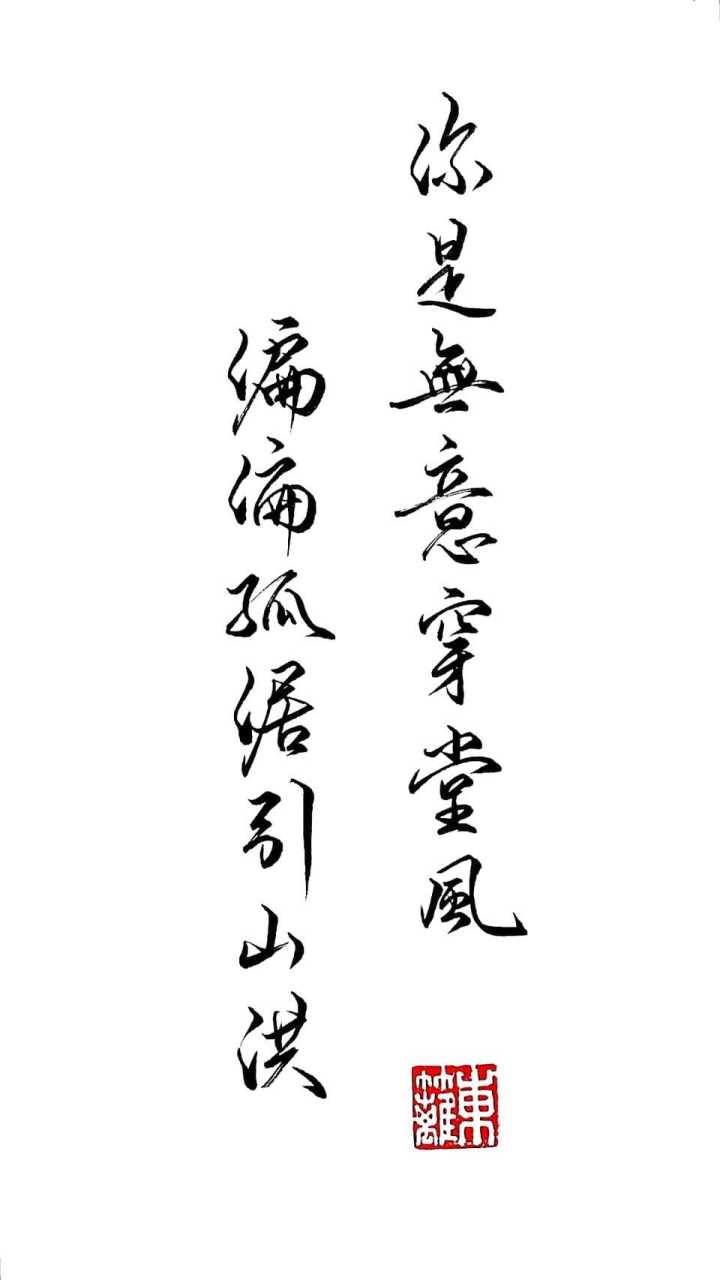 你是無意穿堂風
偏偏孤倨引山洪
東籬